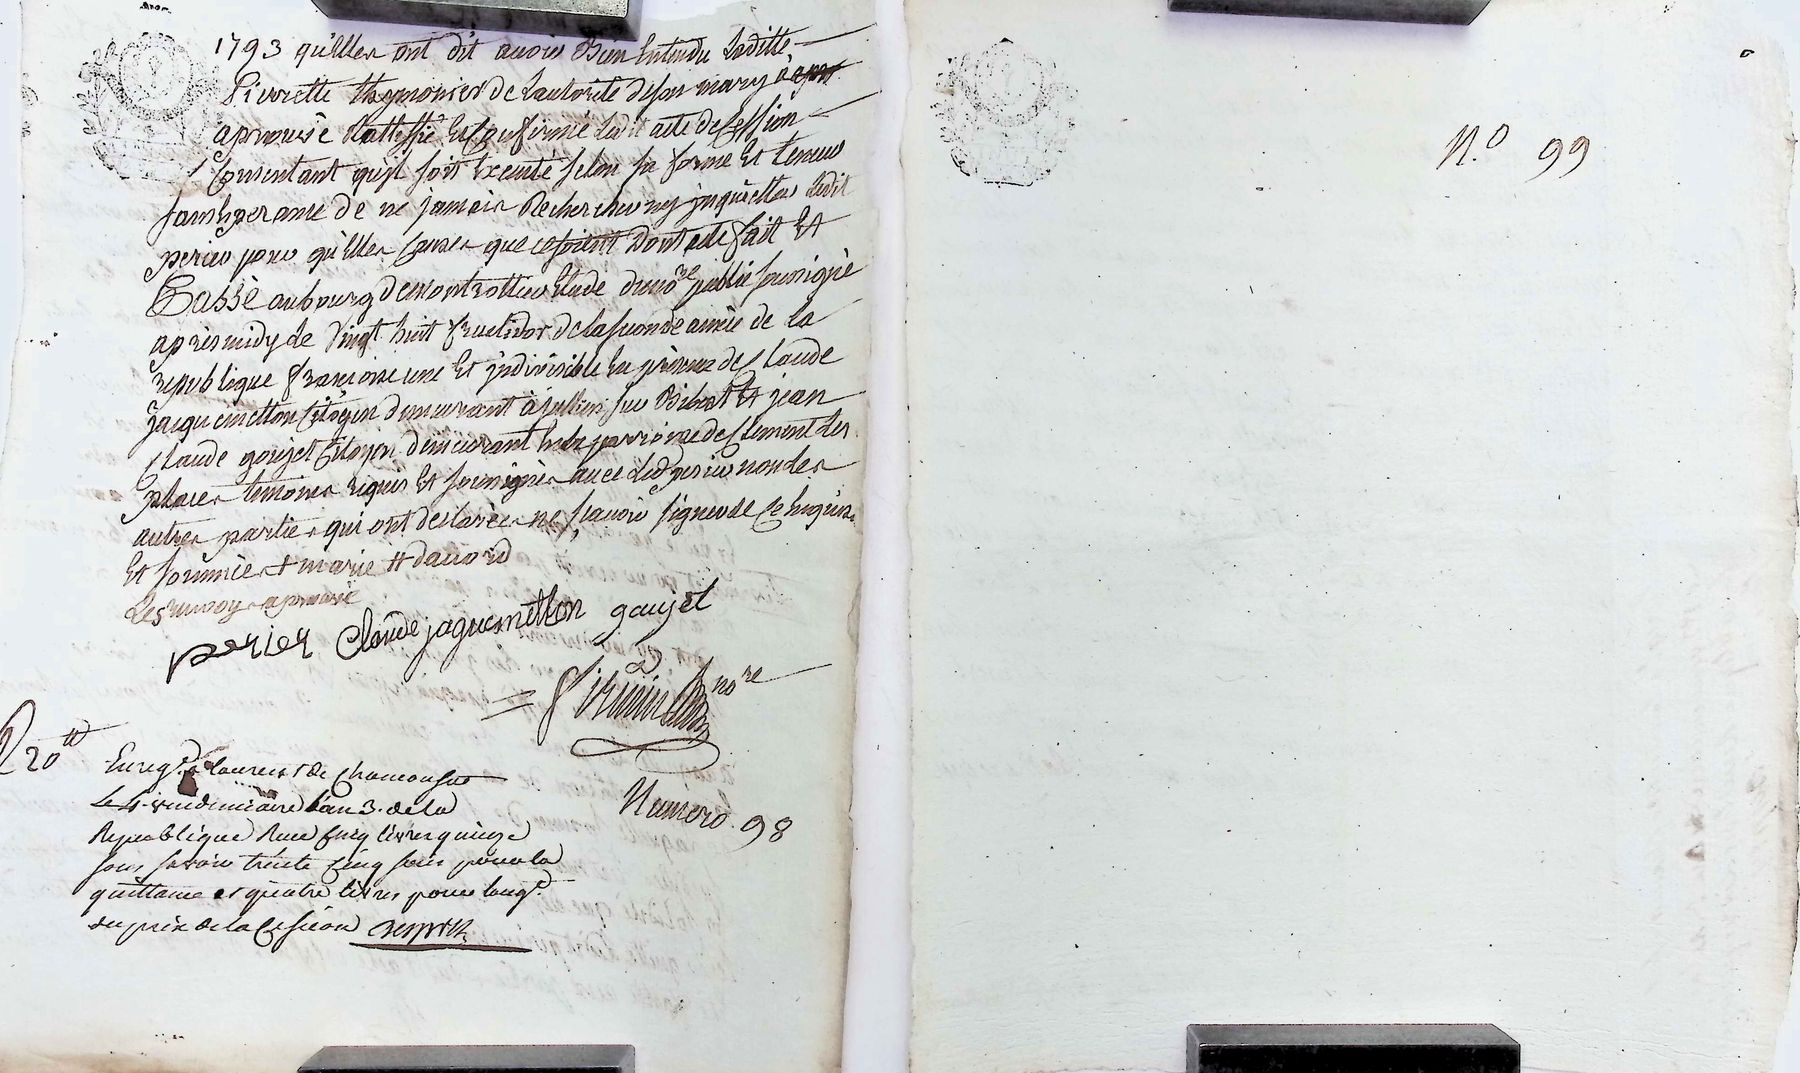 1793 qu'Elles ont dit avoir Bien Entendu Laditte
Pierrette thymonier de Lautorité de son mary
aprouvé Ratiffié Et Confirmé Ledit acte de Cession
Consentant qu'jl soit Execute selon sa forme Et teneur
promesse de ne jamais Rechercher ny jnquietter Ledit
perier pour qu'Elles Causes que ce soient Dont acte fait Et
Passé au bourg de montrottier Etude du nore public soussigné
apres midy le Vingt huit fructidor de la seconde année de la
republique francoise une Et jndivisible En presence de Claude
jaquemetton Citoyen demeurant à jullien sur Bibost Et jean
Claude goujet Citoyen demeurant de Clement Les
places temoins requis Et soussignés avec Led. perier non les
autres parties qui ont declarées ne scavoir signer de Ce Enquises
Et sommées + marie # davord
Les renvoys aprouvé
perier Claude jaquemetton goujet
nore
R 20tt
Enregd. à Laurent de Chamousset
Le 4 vendemiaire L'an 3. de la
Republique Reçu Cinq livres quinze
sous savoir trente Cinq sous pour la
quittance et quatre livres pour
du prix de la Cession
Numero. 98
N.o 99